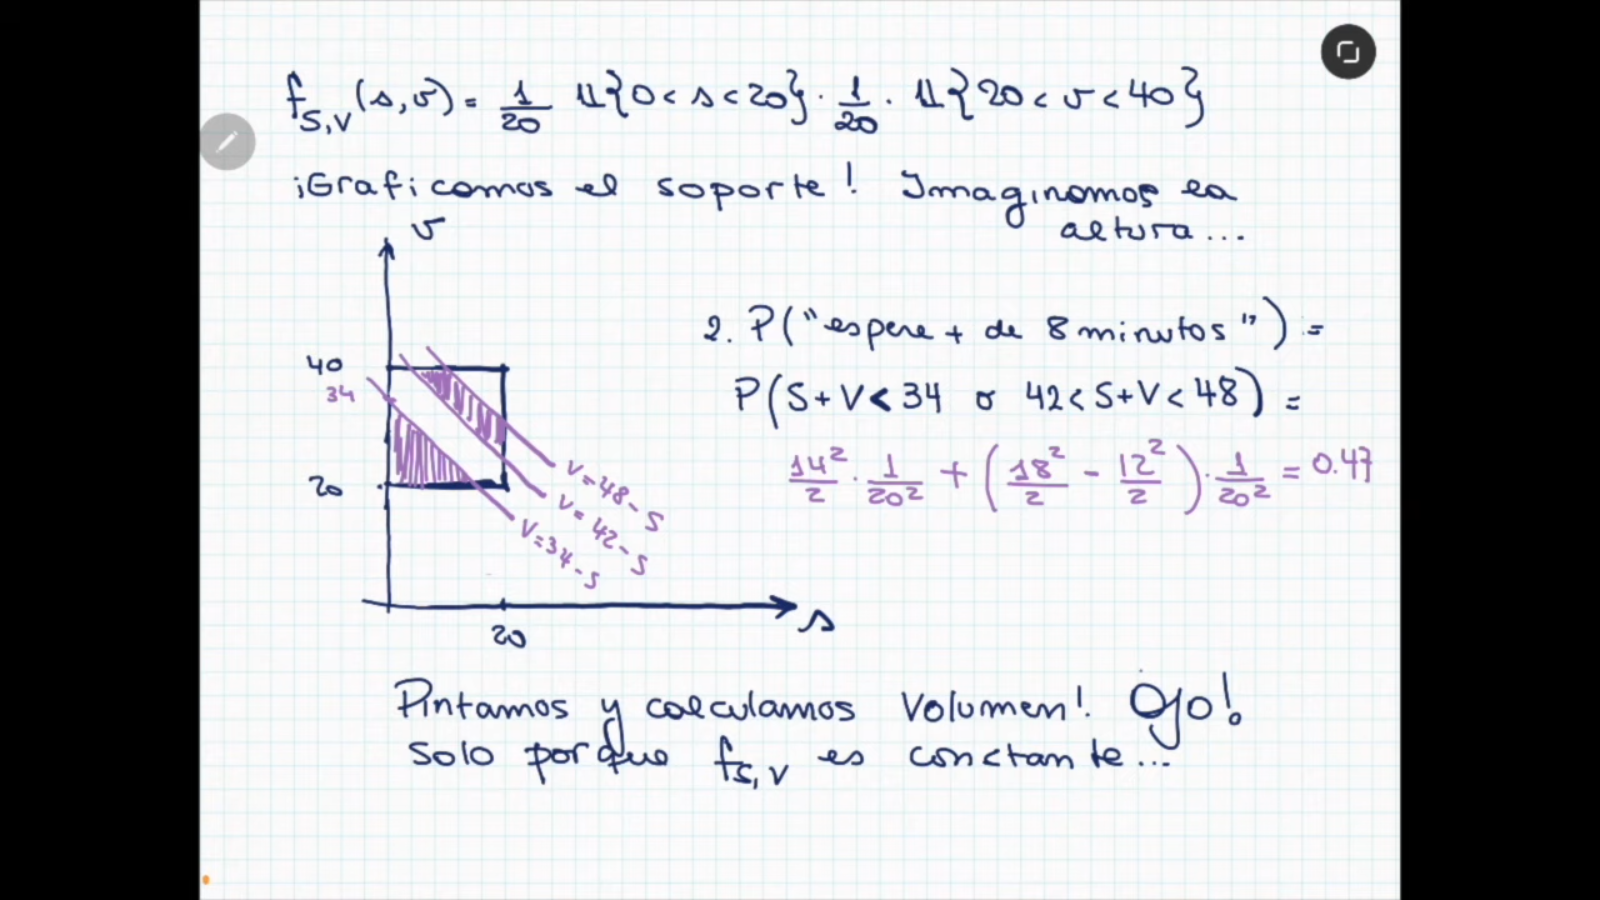 f_{S,V}(s,v) = 1/20 𝟙{0 < s < 20} · 1/20 · 𝟙{20 < v < 40}
¡Graficamos el soporte! Imaginamos la
altura...
v
40
34
20
20
s
v=48-s
v=42-s
v=34-s
2. P("espere + de 8 minutos") =
P(S+V < 34 o 42 < S+V < 48) =
14²/2 · 1/20² + (18²/2 - 12²/2) · 1/20² = 0.47
Pintamos y calculamos Volumen! Ojo!
solo porque f_{S,V} es constante...